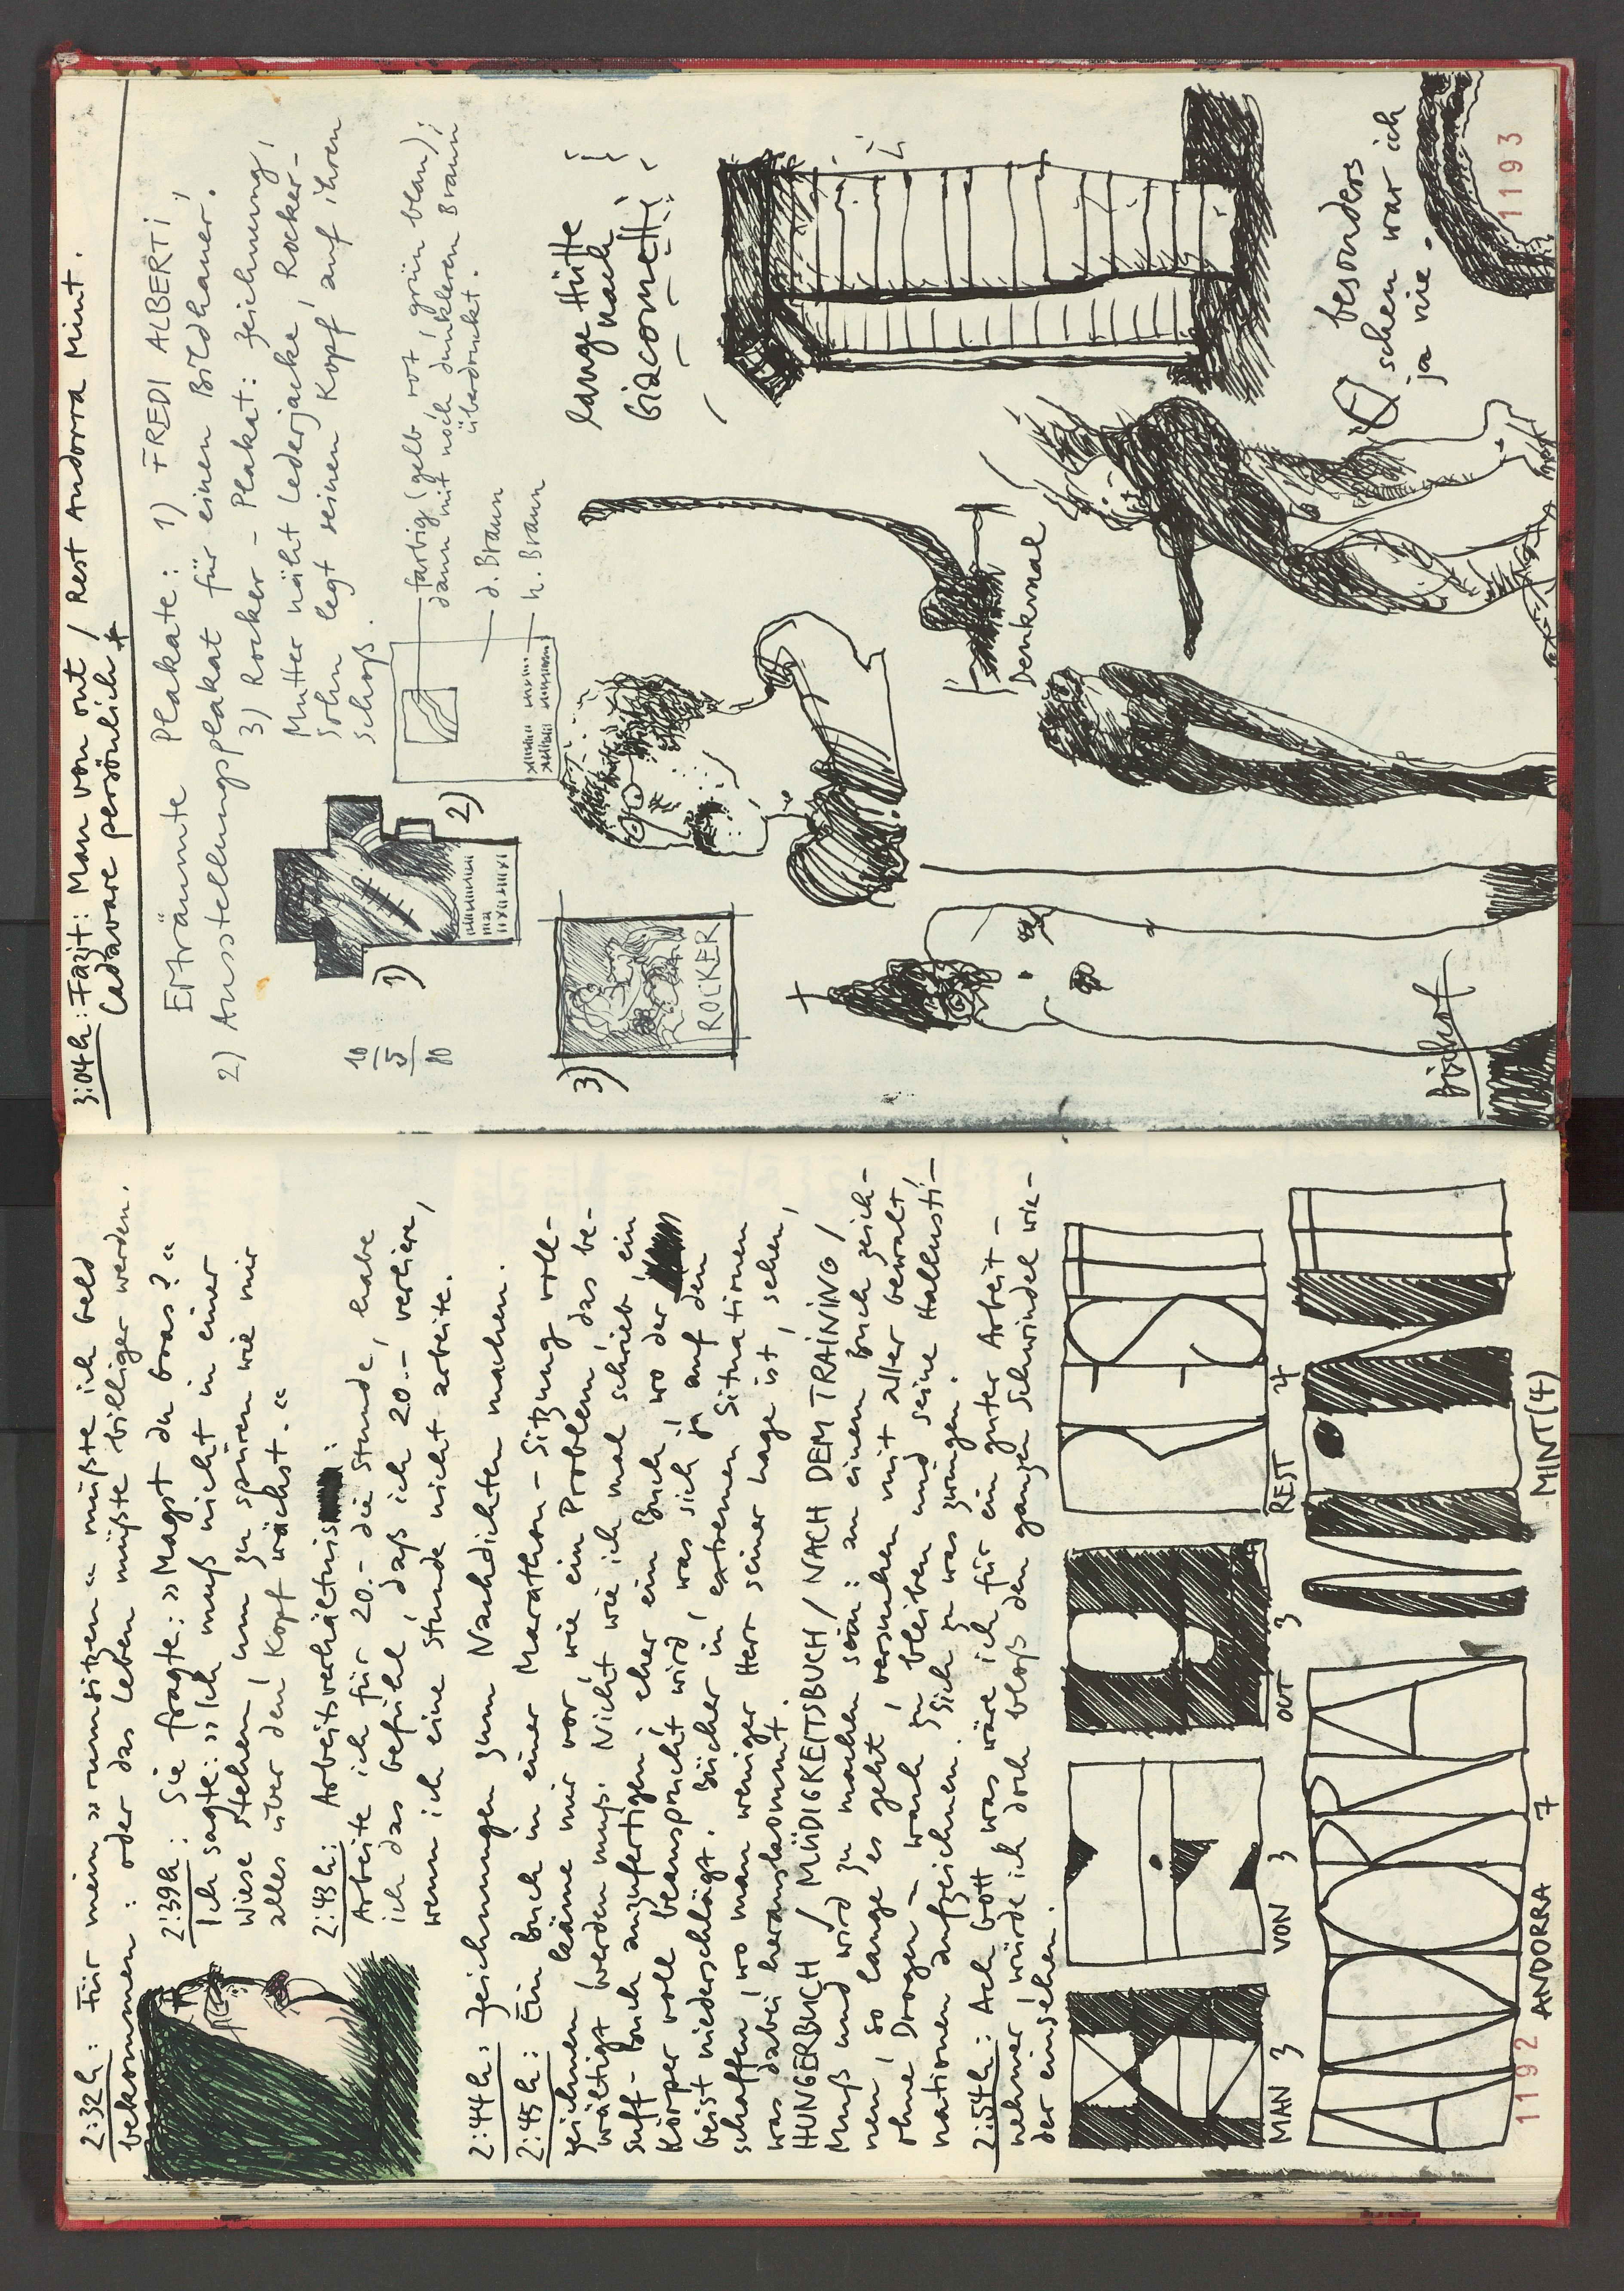 2:32h: Für mein »rumsitzen« müßte ich Geld
bekommen: oder das Leben müßte billiger werden.
2:39h: Sie fragte: »Magst du Gras?«
Ich sagte: »Ich muß nicht in einer
Wiese stehen, um zu spüren wie mir
alles über den Kopf wächst.«
2:43h: Arbeitsverhältnis:
Arbeite ich für 20.- die Stunde, habe
ich das Gefühl, daß ich 20.- verliere,
wenn ich eine Stunde nicht arbeite.
2:44h: Zeichnungen zum Nachdichten machen.
2:45h: Ein Buch in einer Marathon-Sitzung voll-
zeichnen käme mir vor, wie ein Problem, das be-
wältigt werden muß. Nicht wie ich mal schrieb, ein
Suff-Buch anzufertigen, eher ein Buch, wo der
Körper voll beansprucht wird, was sich ja auf den
Geist niederschlägt. Bücher in extremen Situationen
schaffen, wo man weniger Herr seiner Lage ist, sehen,
was dabei herauskommt.
HUNGERBUCH / MÜDIGKEITSBUCH / NACH DEM TRAINING /
Muß und wird zu machen sein: an einem Buch zeich-
nen, so lange es geht, versuchen mit aller Gewalt,
ohne Drogen - wach zu bleiben und seine Hallusti-
nationen aufzeichnen. Sich zu was zwingen.
2:54h: Ach Gott was wäre ich für ein guter Arbeit-
nehmer, würde ich doch bloß den ganzen Schwindel wie-
der einsehen.
MAN 3
VON 3
OUT 3
REST 4
ANDORRA 7
MINT (4)
1192
3:04h: Fazit: Man von out / Rest Andorra Mint.
Cadavare persönlich
Erträumte Plakate: 1) FREDI ALBERTI,
2) Ausstellungsplakat für einen Bildhauer.
3) Rocker-Plakat: Zeichnung,
Mutter näht Lederjacke, Rocker-
sohn legt seinen Kopf auf ihren
Schoß.
10
5
80
1)
2)
farbig (gelb rot, grün blau),
dann mit noch dunklerem Braun
überdruckt.
d. Braun
h. Braun
3)
ROCKER
lange Hütte
nach
Giacometti
Denkmal
besonders
schön war ich
ja nie.
1193